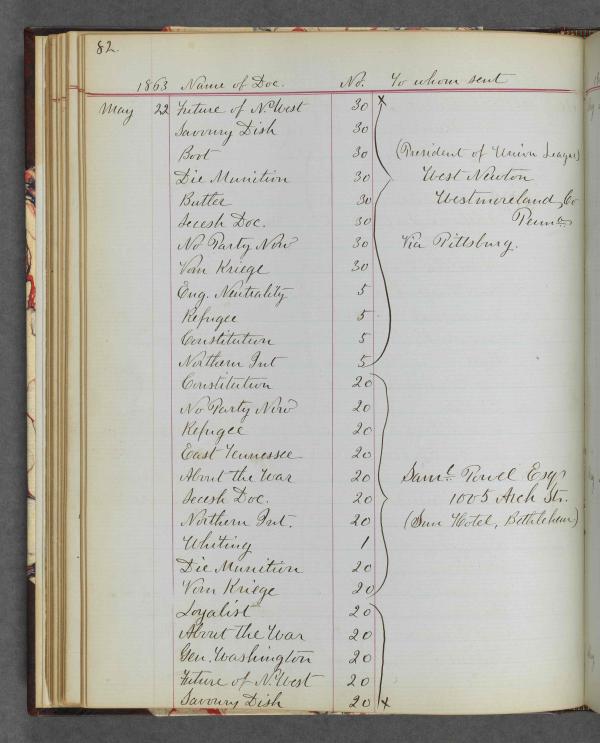 82.
1863 Name of Doc. No. To whom sent
May 22 Future of N. West 30 x
Savoury Dish 30
Boot 30 (President of Union League)
Die Munition 30 West Newton
Butler 30 Westmoreland Co
Secesh Doc. 30 Penna
No Party Now 30 Via Pittsburg.
Vom Kriege 30
Eng. Neutrality 5
Refugee 5
Constitution 5
Northern Int 5
Constitution 20
No Party Now 20
Refugee 20
East Tennessee 20
About the War 20 Saml. Powel Esqr
Secesh Doc. 20 1005 Arch Str.
Northern Int. 20 (Sun Hotel, Bethlehem)
Whiting 1
Die Munition 20
Vom Kriege 20
Loyalist 20
About the War 20
Gen. Washington 20
Future of N. West 20
Savoury Dish 20 x